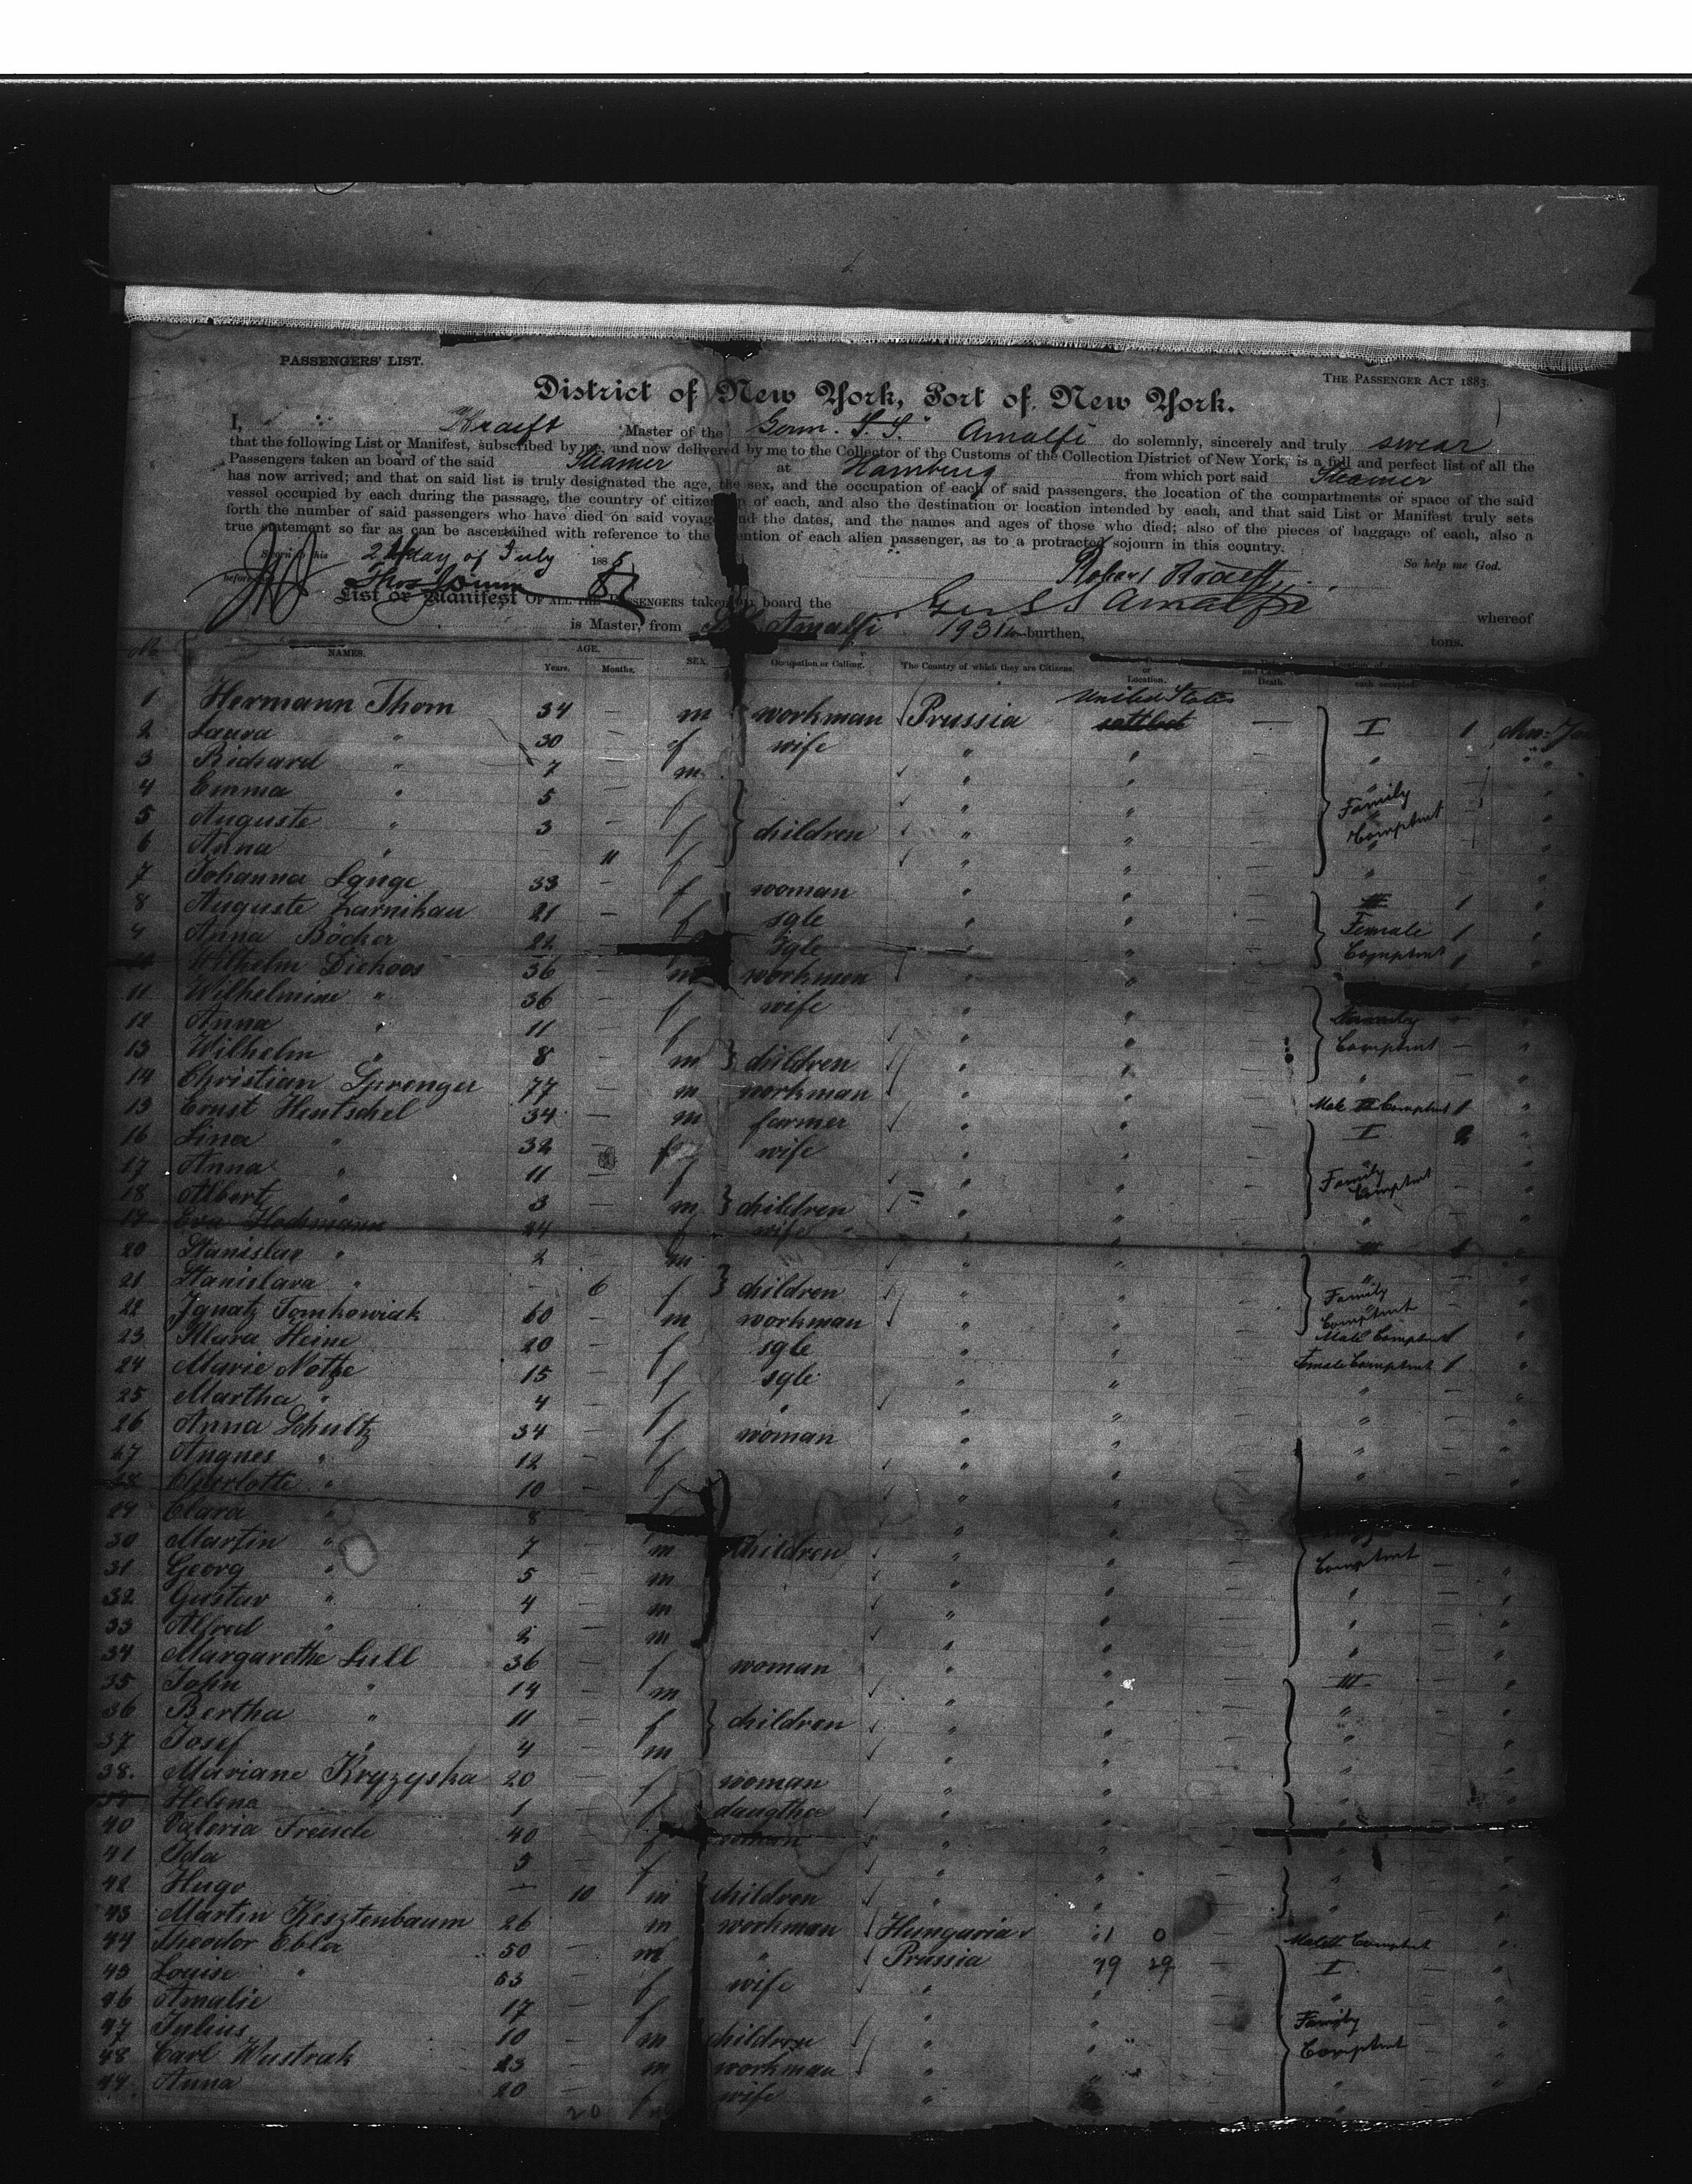 PASSENGERS' LIST.
THE PASSENGER ACT 1883.
District of New York, Port of New York.
I, Kraeft Master of the Germ. S. S. Amalfi do solemnly, sincerely and truly swear
that the following List or Manifest, subscribed by me, and now delivered by me to the Collector of the Customs of the Collection District of New York, is a full and perfect list of all the
Passengers taken on board of the said Steamer at Hamburg from which port said Steamer
has now arrived; and that on said list is truly designated the age, the sex, and the occupation of each of said passengers, the location of the compartments or space of the said
vessel occupied by each during the passage, the country of citizenship of each, and also the destination or location intended by each, and that said List or Manifest truly sets
forth the number of said passengers who have died on said voyage and the dates, and the names and ages of those who died; also of the pieces of baggage of each, also a
true statement so far as can be ascertained with reference to the intention of each alien passenger, as to a protracted sojourn in this country.
So help me God.
Sworn to this day of July 188
before
Robert Kraeft
List or Manifest OF ALL THE PASSENGERS taken on board the Ger S S Amalfi whereof
is Master, from Amalfi 1931 burthen, tons.
NAMES. AGE. Years. Months. SEX. Occupation or Calling. The Country of which they are Citizens. or Location. Death.
1 Hermann Thom 34 — m workman Prussia United States — I 1
2 Laura " 30 — f wife " "
3 Richard " 7 — m " "
4 Emma " 5 — f " " Family
5 Auguste " 3 — f children " " Comptmt
6 Anna " 11 f " "
7 Johanna Lange 33 — f woman " "
8 Auguste Zarnikau 21 — f sgle " " III 1
9 Anna Böcker 22 f sgle " Female 1
Wilhelm Diekoos 36 — m workman " " Comptmt 1
11 Wilhelmine " 36 — f wife " "
12 Anna " 11 — f " "
13 Wilhelm " 8 — m children " " Comptmt —
14 Christian Sprenger 77 — m workman " "
15 Ernst Hentschel 34 — m farmer " " Male Comptmt 1
16 Lina " 32 — f wife " " I 2
17 Anna " 11 — f " " Family
18 Albert " 3 m children " " Comptmt
19 Eva Hochmann 24 f wife " "
20 Stanislav " 2 m " " III 1
21 Stanislava " — 6 f children " " Family
22 Ignatz Tomkowiak 60 — m workman " " Comptmt
23 Klara Heine 20 — f sgle " " Male Comptmt 1
24 Marie Nothe 15 — f sgle " " Female Comptmt 1
25 Martha " 4 — f " " "
26 Anna Schultz 34 — f woman " "
27 Angnes " 12 — f " "
28 Charlotte " 10 — f " "
29 Clara " 8 " "
30 Martin " 7 m children " "
31 Georg " 5 — m " " Comptmt —
32 Gustav " 4 — m " "
33 Alfred " 2 — m " "
34 Margarethe Lull 36 f woman " "
35 John " 14 — m " " III
36 Bertha " 11 — f children " "
37 Josef " 4 — m " "
38. Mariane Kryzyska 20 — f woman " "
Helena 1 f daugther " "
40 Valeria Freisch 40 — f woman " "
41 Ida 5 f " "
42 Hugo — 10 m children " "
43 Martin Kesztenbaum 26 m workman Hungaria 1 0
44 Theodor Ebler 50 — m " Prussia 79 29 Comptmt
45 Louise " 53 — f wife " " I
46 Amalie 17 f " "
47 Julius 10 — m children " " Family
48 Carl Wustrak 23 — m workman " " Comptmt
49. Anna 20 — f wife "
20